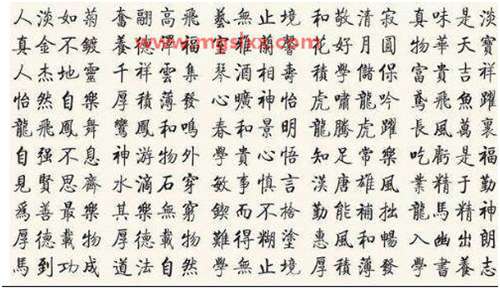 人淡如菊 奮翮高飛 藝無止境 和敬清寂 真味是淡
真金不鍍 養 福 花好月圓 物華天寶
人杰地靈 千祥雲集 琴酒相 積學儲 富貴吉祥
怡然自樂 厚積薄發 心曠神怡 虎嘯龍吟 鳶飛魚躍
龍飛鳳舞 鸞鳳和鳴 春和景明 龍騰虎躍 長風萬裏
自强不息 神游物外 學貴心悟 知足常樂 吃虧是福
見賢思齊 水滴石穿 敏事慎言 漢唐雄風 業精于勤
爲善最樂 其樂無窮 鍥而不捨 勤能補拙 龍馬精神
厚德載物 厚德載物 難得糊塗 惠風和暢 入幽出朗
馬到功成 道法自然 學無止境 厚積薄發 學書養志